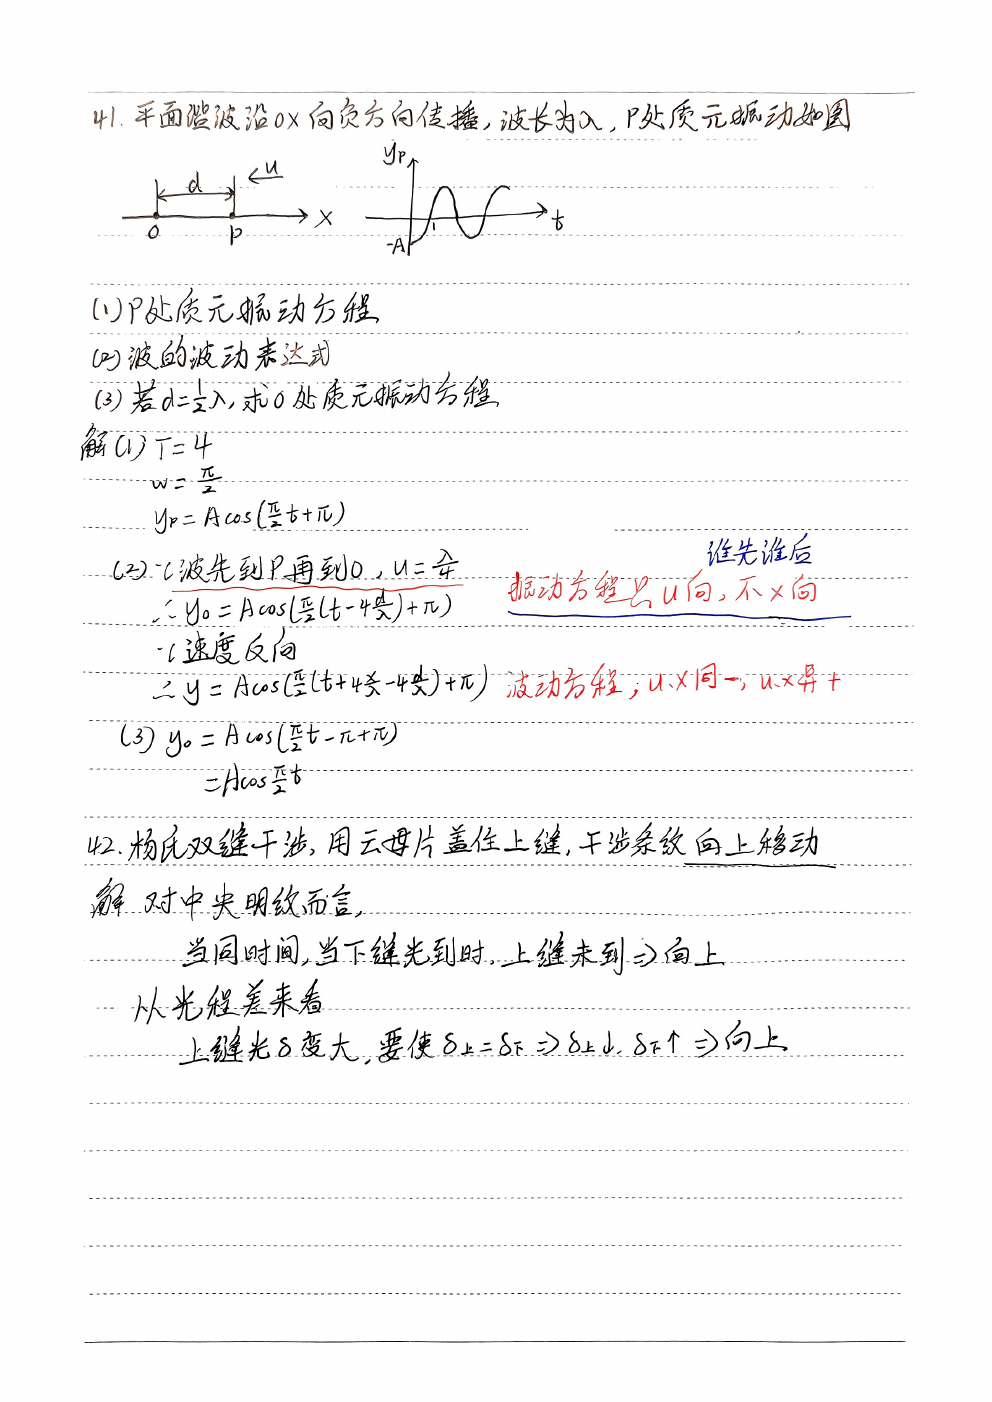 41. 平面谐波沿OX向负方向传播，波长为λ，P处质元振动如图
d u O P X
yP -A 1 t
(1) P处质元振动方程
(2) 波的波动表达式
(3) 若d=½λ，求O处质元振动方程
解(1) T=4
w=π/2
yP=Acos(π/2 t+π)
(2) ∵波先到P再到O，u=λ/4
谁先谁后
∴y0=Acos(π/2(t-4d/λ)+π)
振动方程只u向，不x向
∵速度反向
∴y=Acos(π/2(t+4x/λ-4d/λ)+π)
波动方程；u、x同-，u、x异+
(3) y0=Acos(π/2 t-π+π)
=Acosπ/2 t
42. 杨氏双缝干涉，用云母片盖住上缝，干涉条纹向上移动
解 对中央明纹而言，
当同时间，当下缝光到时，上缝未到⇒向上
从光程差来看
上缝光δ变大，要使δ上=δ下⇒δ上↓，δ下↑⇒向上